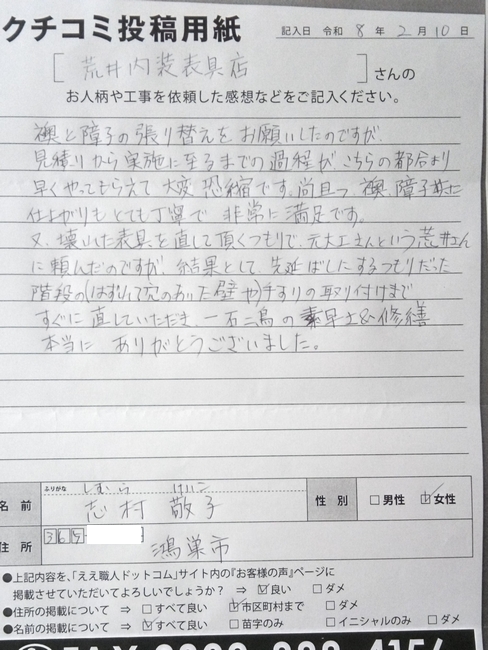 クチコミ投稿用紙
記入日 令和 8 年 2 月 10 日
[ 荒井内装表具店 ]さんの
お人柄や工事を依頼した感想などをご記入ください。
襖と障子の張り替えをお願いしたのですが、
見積りから実施に至るまでの過程がこちらの都合より
早くやってもらえて大変恐縮です。尚且つ、襖、障子共に
仕上がりもとても丁寧で 非常に満足です。
又、壊れた表具を直して頂くつもりで、元大工さんという荒井さん
に頼んだのですが、結果として、先延ばしにするつもりだった
階段の(はずれて穴のあいた壁や)手すりの取り付けまで
すぐに直していただき、一石二鳥の素早さ&修繕
本当に ありがとうございました。
ふりがな しむら けいこ
名前 志村 敬子
性別 □男性 ☑女性
住所 365- 鴻巣市
●上記内容を、「ええ職人ドットコム」サイト内の『お客様の声』ページに
掲載させていただいてよろしいでしょうか? ⇒ ☑良い □ダメ
●住所の掲載について ⇒ □すべて良い ☑市区町村まで □ダメ
●名前の掲載について ⇒ ☑すべて良い □苗字のみ □イニシャルのみ □ダメ